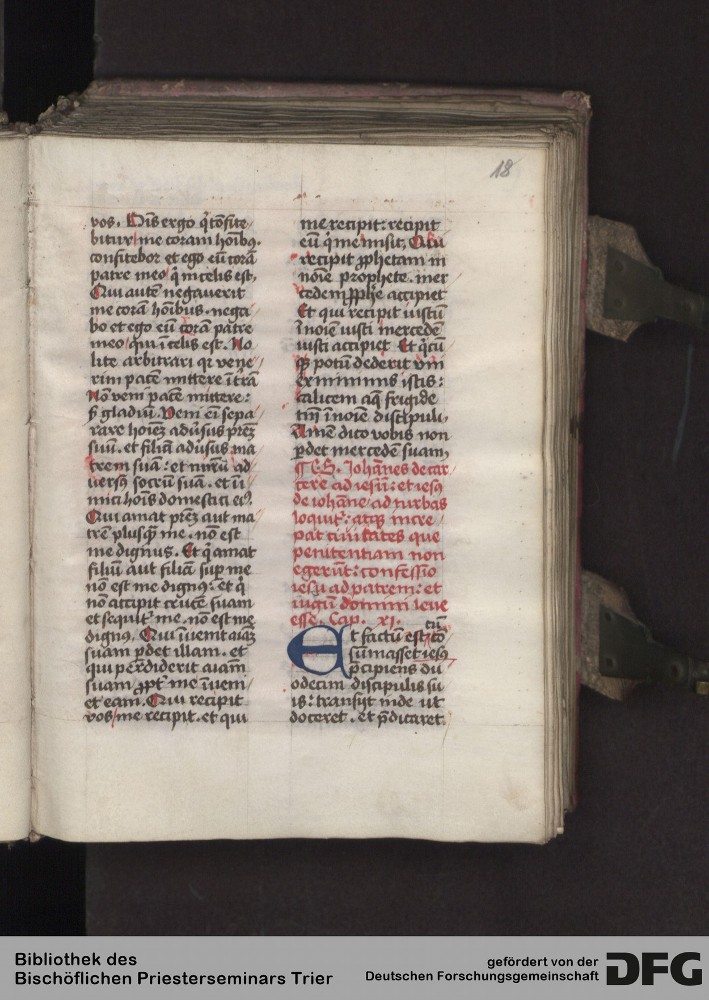 18
vos. Oīs ergo q̄ cōfite
bitur me coram hoībꝯ.
confitebor et ego eū corā
patre meo q̄ in celis est.
Qui autē negaverit
me corā hoībus. nega
bo et ego eū corā patre
meo qui ī celis est. No
lite arbitrari qꝛ vene
rim pacē mittere ī t̄rā
Nō veni pacē mittere:
ſꝫ gladiū. Veni eī sepa
rare hoīeꝫ adūsus prēꝫ
suū. et filiā adūsus ma
trem suā: et nurū ad
versꝯ socrū suā. et īi
mici hoīs domestici eiꝯ.
Qui amat prēꝫ aut ma
trē plusqꝫ me. nō est
me dignus. Et q̄ amat
filiū aut filiā suꝑ me
nō est me dignꝯ: et q̄
nō accipit crucē suam
et seqult᷑ me. nō est me
dignꝯ. Qui īuenit aīaꝫ
suam ꝑdet illam. et
qui perdiderit aīam
suam ꝓpt᷑ me īueni
et eam. Qui recipit
vos me recipit. et qui
me recipit: recipit
eū q̄ me misit. Qui
recipit ꝓphetam in
noīe prophete. mer
cedem ꝓphe accipiet
Et qui recipit iustū
ī noīe iusti mercedē
iusti accipiet Et q̄cū
qꝫ potū dederit vni
ex minimis istis:
calicem aq̄ frigide
tm̄ ī noīe discipuli.
Amē dico vobis non
ꝑdet mercedē suam
Johānes de car
cere ad iesū: et iesꝯ
de iohāne ad turbas
loquit᷑: atqꝫ incre
pat civitates que
penitentiam non
egerūt: confessio
iesu ad patrem: et
iugū domini leve
esse. Cap. xj.
Et factū est cū cō
sūmasset iesꝯ
p̄cipiens du
odecim discipulis su
is: transiit inde ut
doceret. et p̄dicaret
Bibliothek des
Bischöflichen Priesterseminars Trier
gefördert von der
Deutschen Forschungsgemeinschaft
DFG